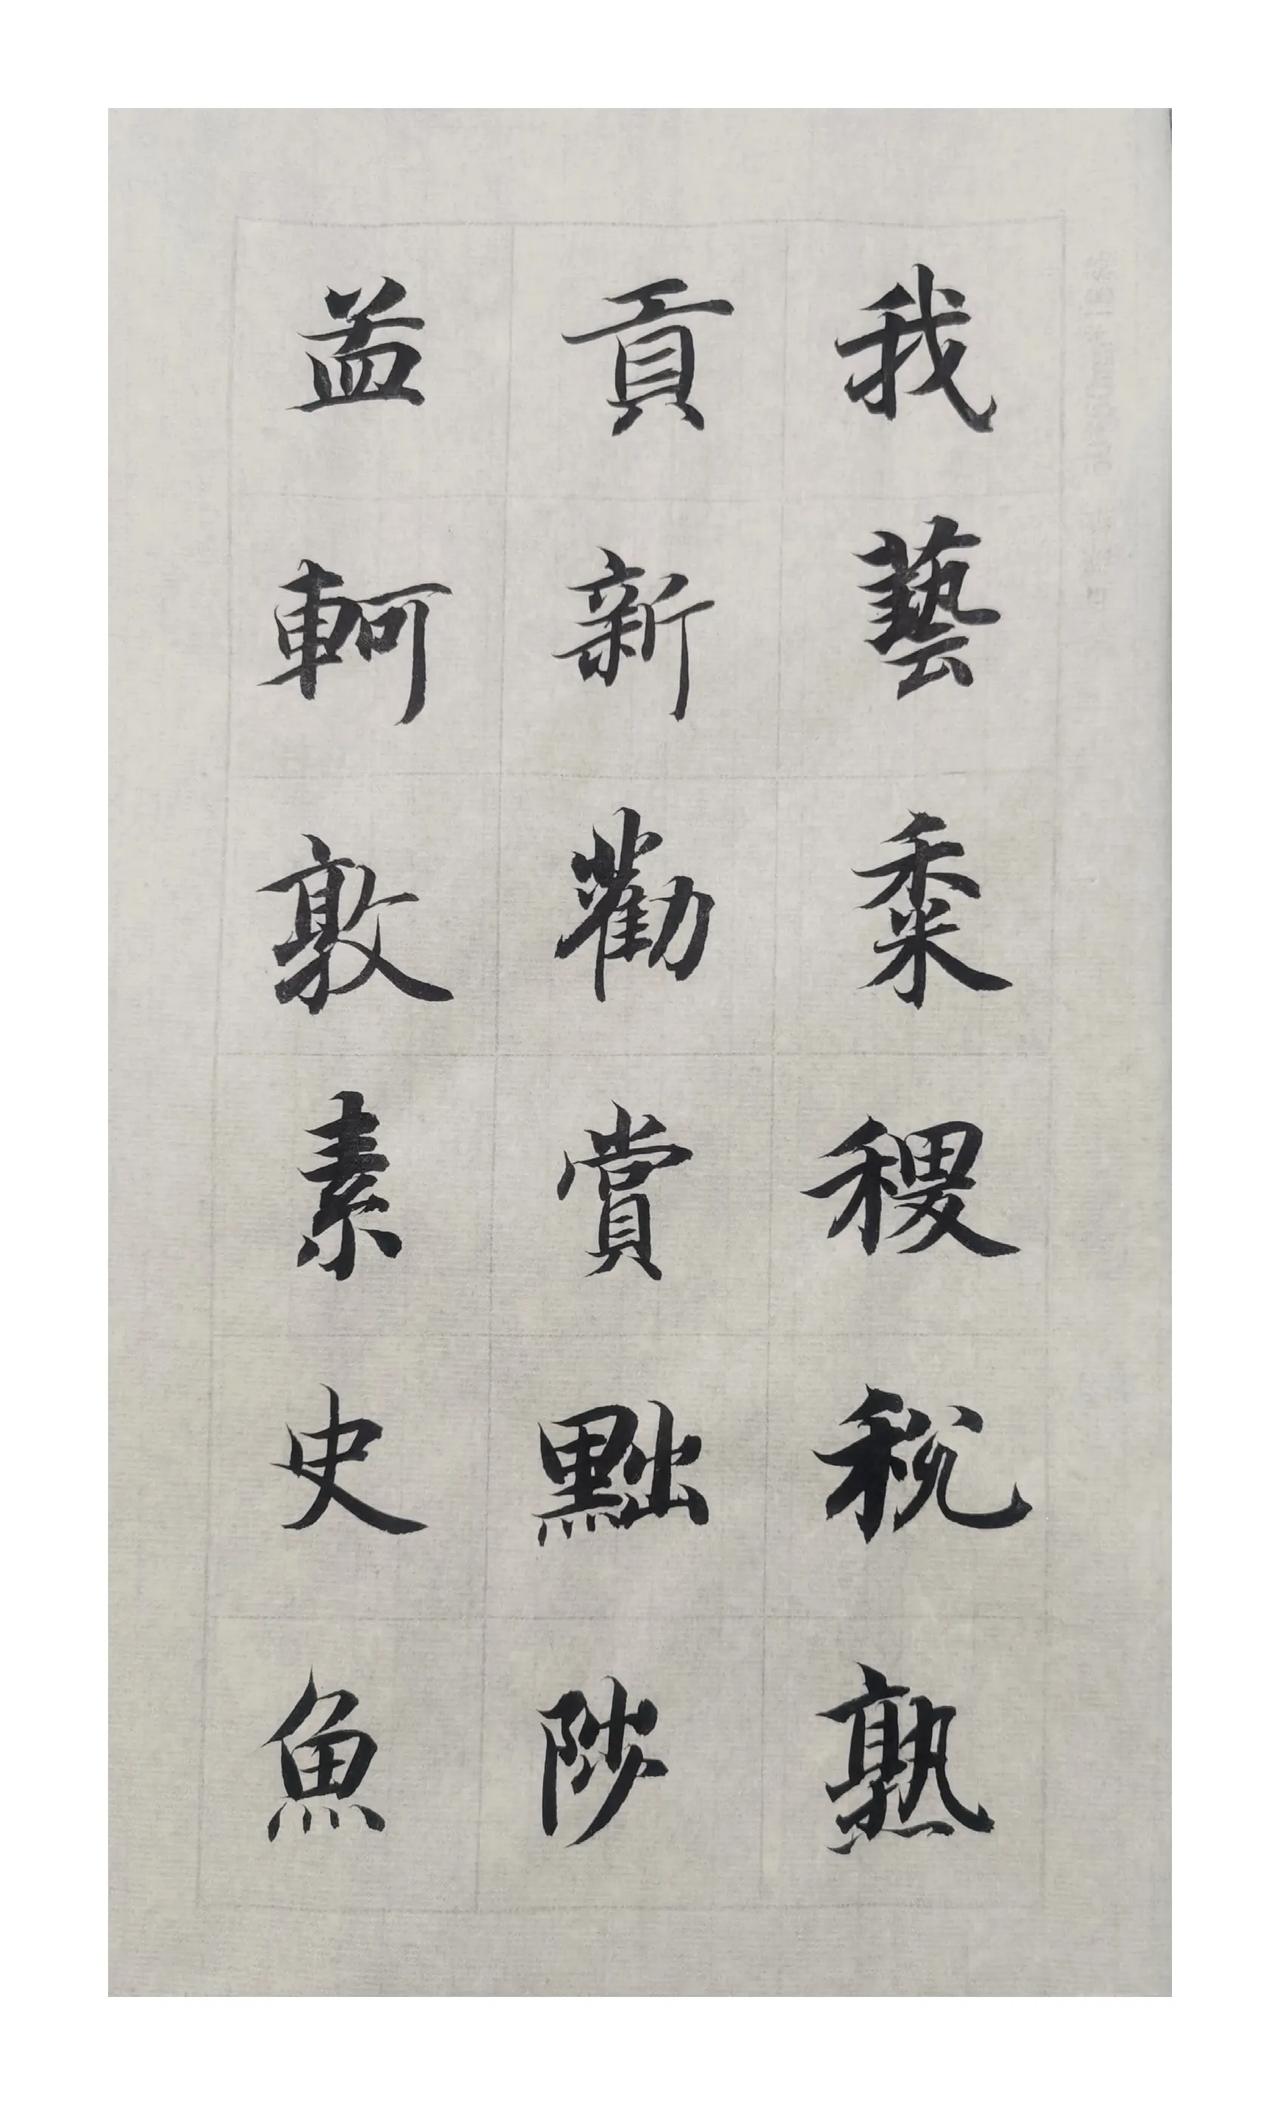 我藝黍稷稅熟
貢新勸賞黜陟
孟軻敦素史魚